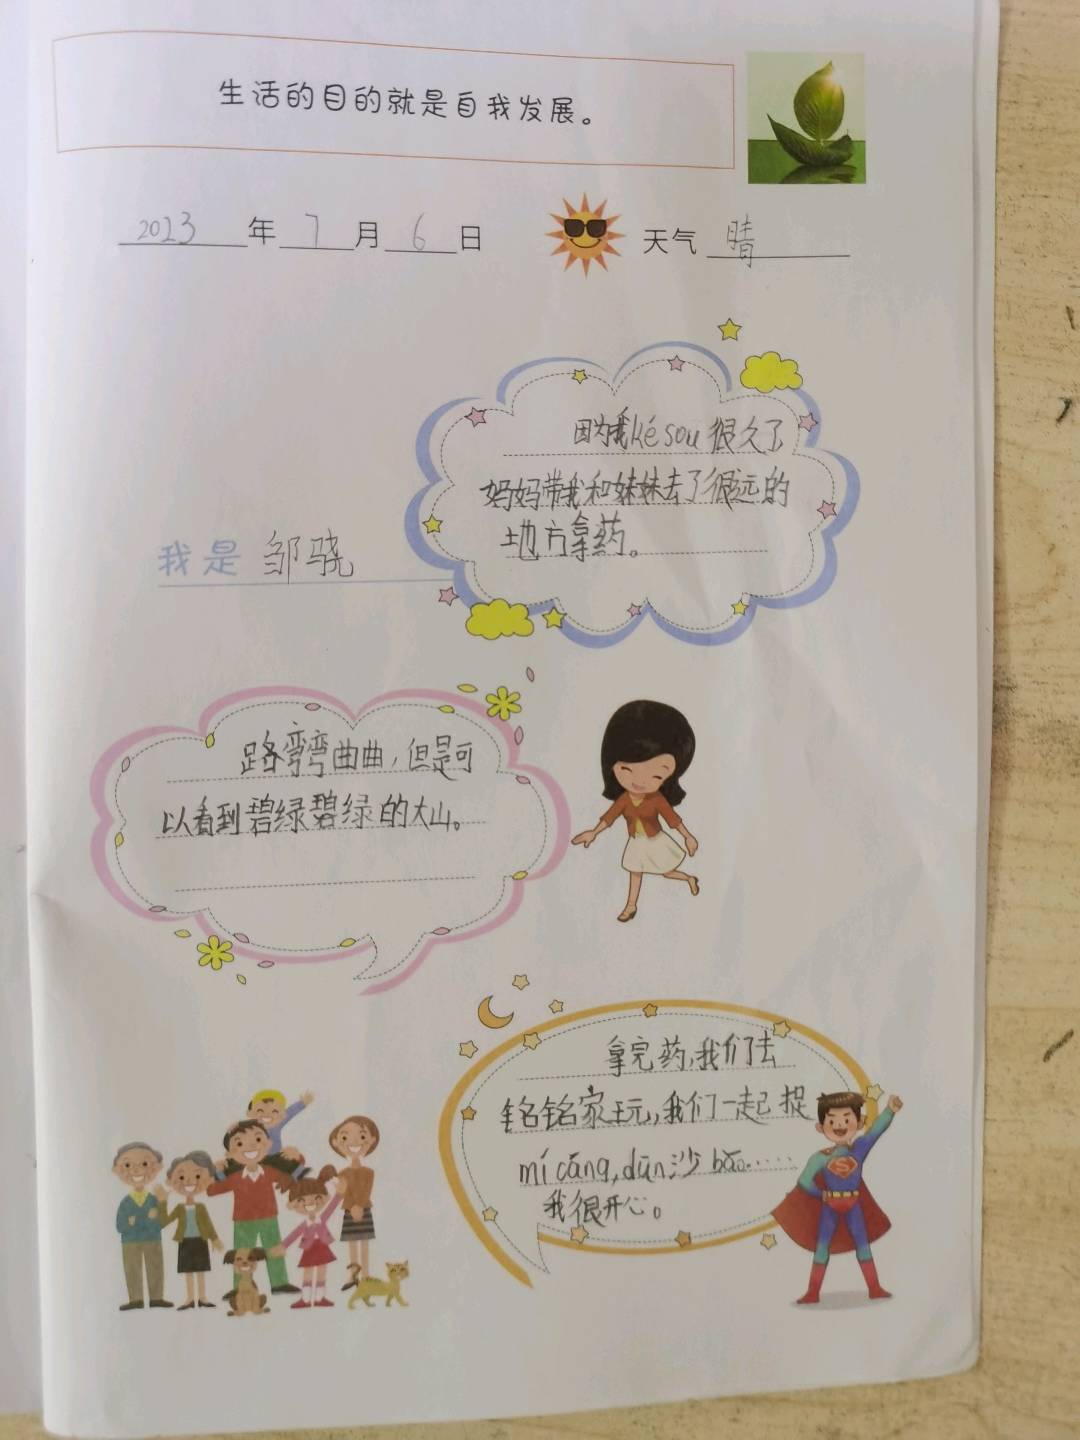 生活的目的就是自我发展。
2023年7月6日 天气 晴
因为我ké sou 很久了
妈妈带我和妹妹去了很远的
地方拿药。
我是 邹骁
路弯弯曲曲，但是可
以看到碧绿碧绿的大山。
拿完药，我们去
铭铭家玩，我们一起捉
mí cāng，dūn沙bāo……
我很开心。
S